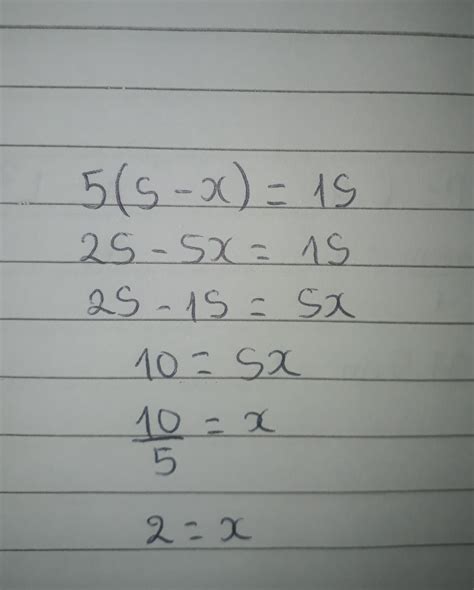 5(5-x) = 15
25 - 5x = 15
25 - 15 = 5x
10 = 5x
10/5 = x
2 = x